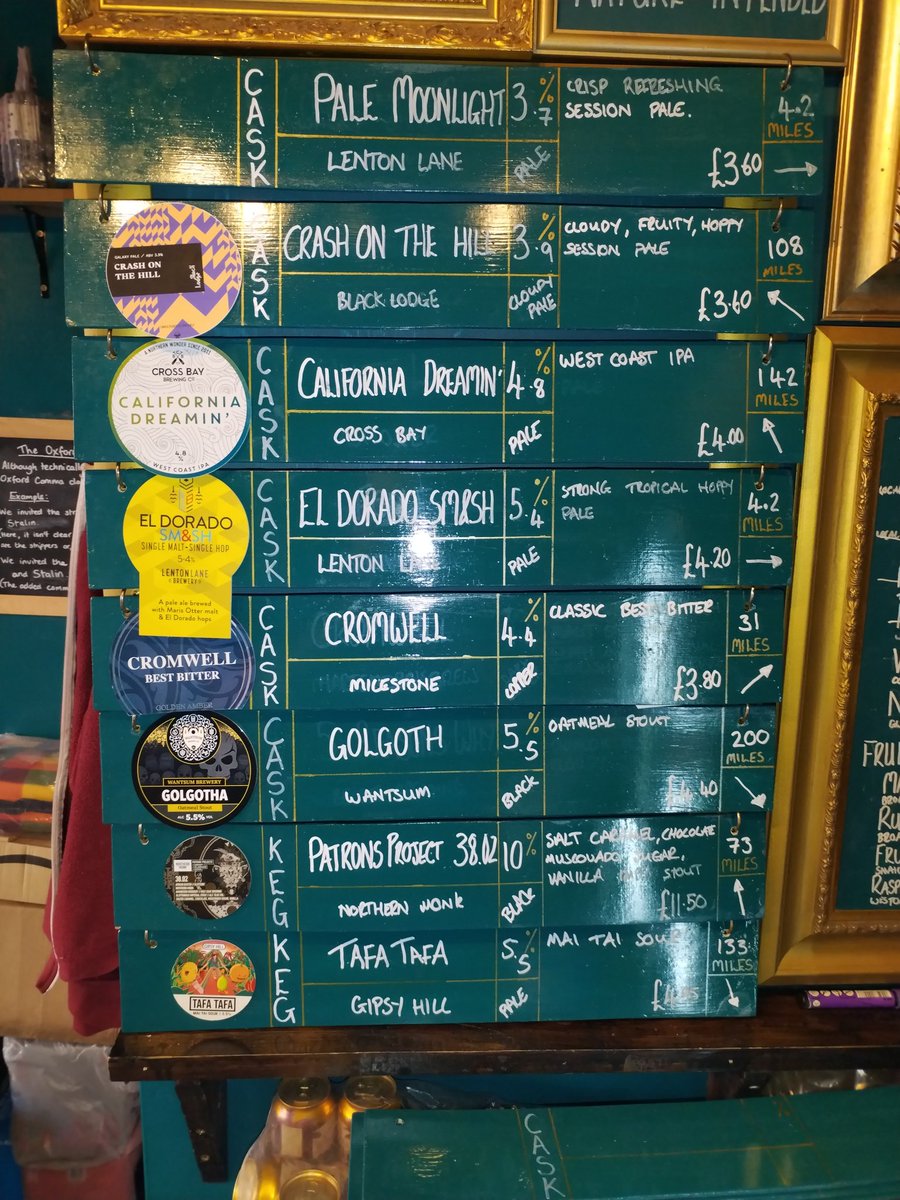 NATURE INTENDED
CASK
PALE MOONLIGHT
3.7%
CRISP REFRESHING
SESSION PALE.
4.2
MILES
LENTON LANE
PALE
£3.60
GALAXY PALE / ABV 3.9%
CRASH ON
THE HILL
Black
Lodge
CASK
CRASH ON THE HILL
3.9%
CLOUDY, FRUITY, HOPPY
SESSION PALE
108
MILES
BLACK LODGE
CLOUDY
PALE
£3.60
A NORTHERN WONDER SINCE 2011
CROSS BAY
BREWING CO
CALIFORNIA
DREAMIN'
4.8
%
WEST COAST IPA
CASK
CALIFORNIA DREAMIN'
4.8%
WEST COAST IPA
142
MILES
CROSS BAY
PALE
£4.00
EL DORADO
SM&SH
SINGLE MALT-SINGLE HOP
5.4%
LENTON LANE
BREWERY
A pale ale brewed
with Maris Otter malt
& El Dorado hops
CASK
EL DORADO SM&SH
5.4%
STRONG TROPICAL HOPPY
PALE
4.2
MILES
LENTON LANE
PALE
£4.20
CROMWELL
BEST BITTER
GOLDEN AMBER
CASK
CROMWELL
4.4%
CLASSIC BEST BITTER
31
MILES
MILESTONE
COPPER
£3.80
WANTSUM BREWERY
GOLGOTHA
Oatmeal Stout
ALC 5.5% VOL
CASK
GOLGOTH
5.5%
OATMEAL STOUT
200
MILES
WANTSUM
BLACK
£4.40
38.02
KEG
PATRONS PROJECT 38.02
10%
SALT CARAMEL, CHOCOLATE
MUSCOVADO SUGAR,
VANILLA STOUT
73
MILES
NORTHERN MONK
BLACK
£11.50
GIPSY HILL
TAFA TAFA
MAI TAI SOUR / 5.5%
KEG
TAFA TAFA
5.5%
MAI TAI SOUR
133
MILES
GIPSY HILL
PALE
The Oxfor
Although technicall
Oxford Comma
Example:
We invited the
Stalin.
here, it isn't clear
are the strippers
We invited the
and Stalin.
(The added comm
FRU
MA
RU
FRU
RASP
CASK